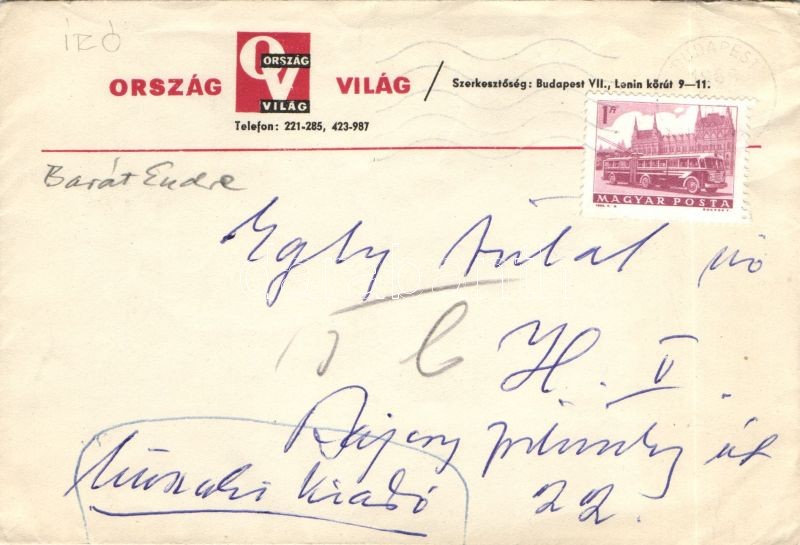 ÍRÓ
ORSZÁG ORSZÁG VILÁG VILÁG / Szerkesztőség: Budapest VII., Lenin körút 9–11.
Telefon: 221-285, 423-987
BUDAPEST
1 Ft
MAGYAR POSTA
Barát Endre
Egly Antal
V.
Bajcsy Zsilinszky út
22.
Műszaki Kiadó